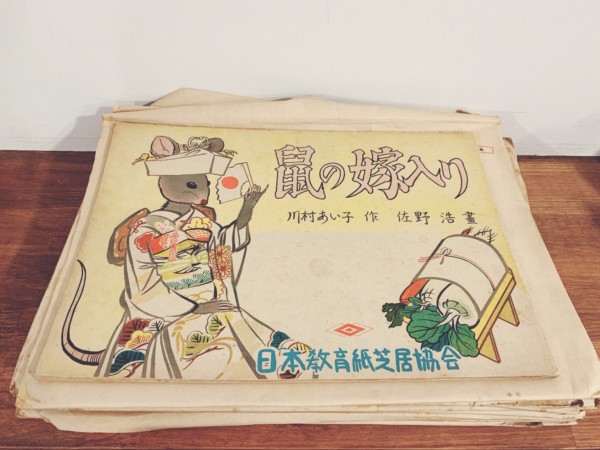 鼠の嫁入り
川村あい子 作 佐野 浩 畫
日本教育紙芝居協会